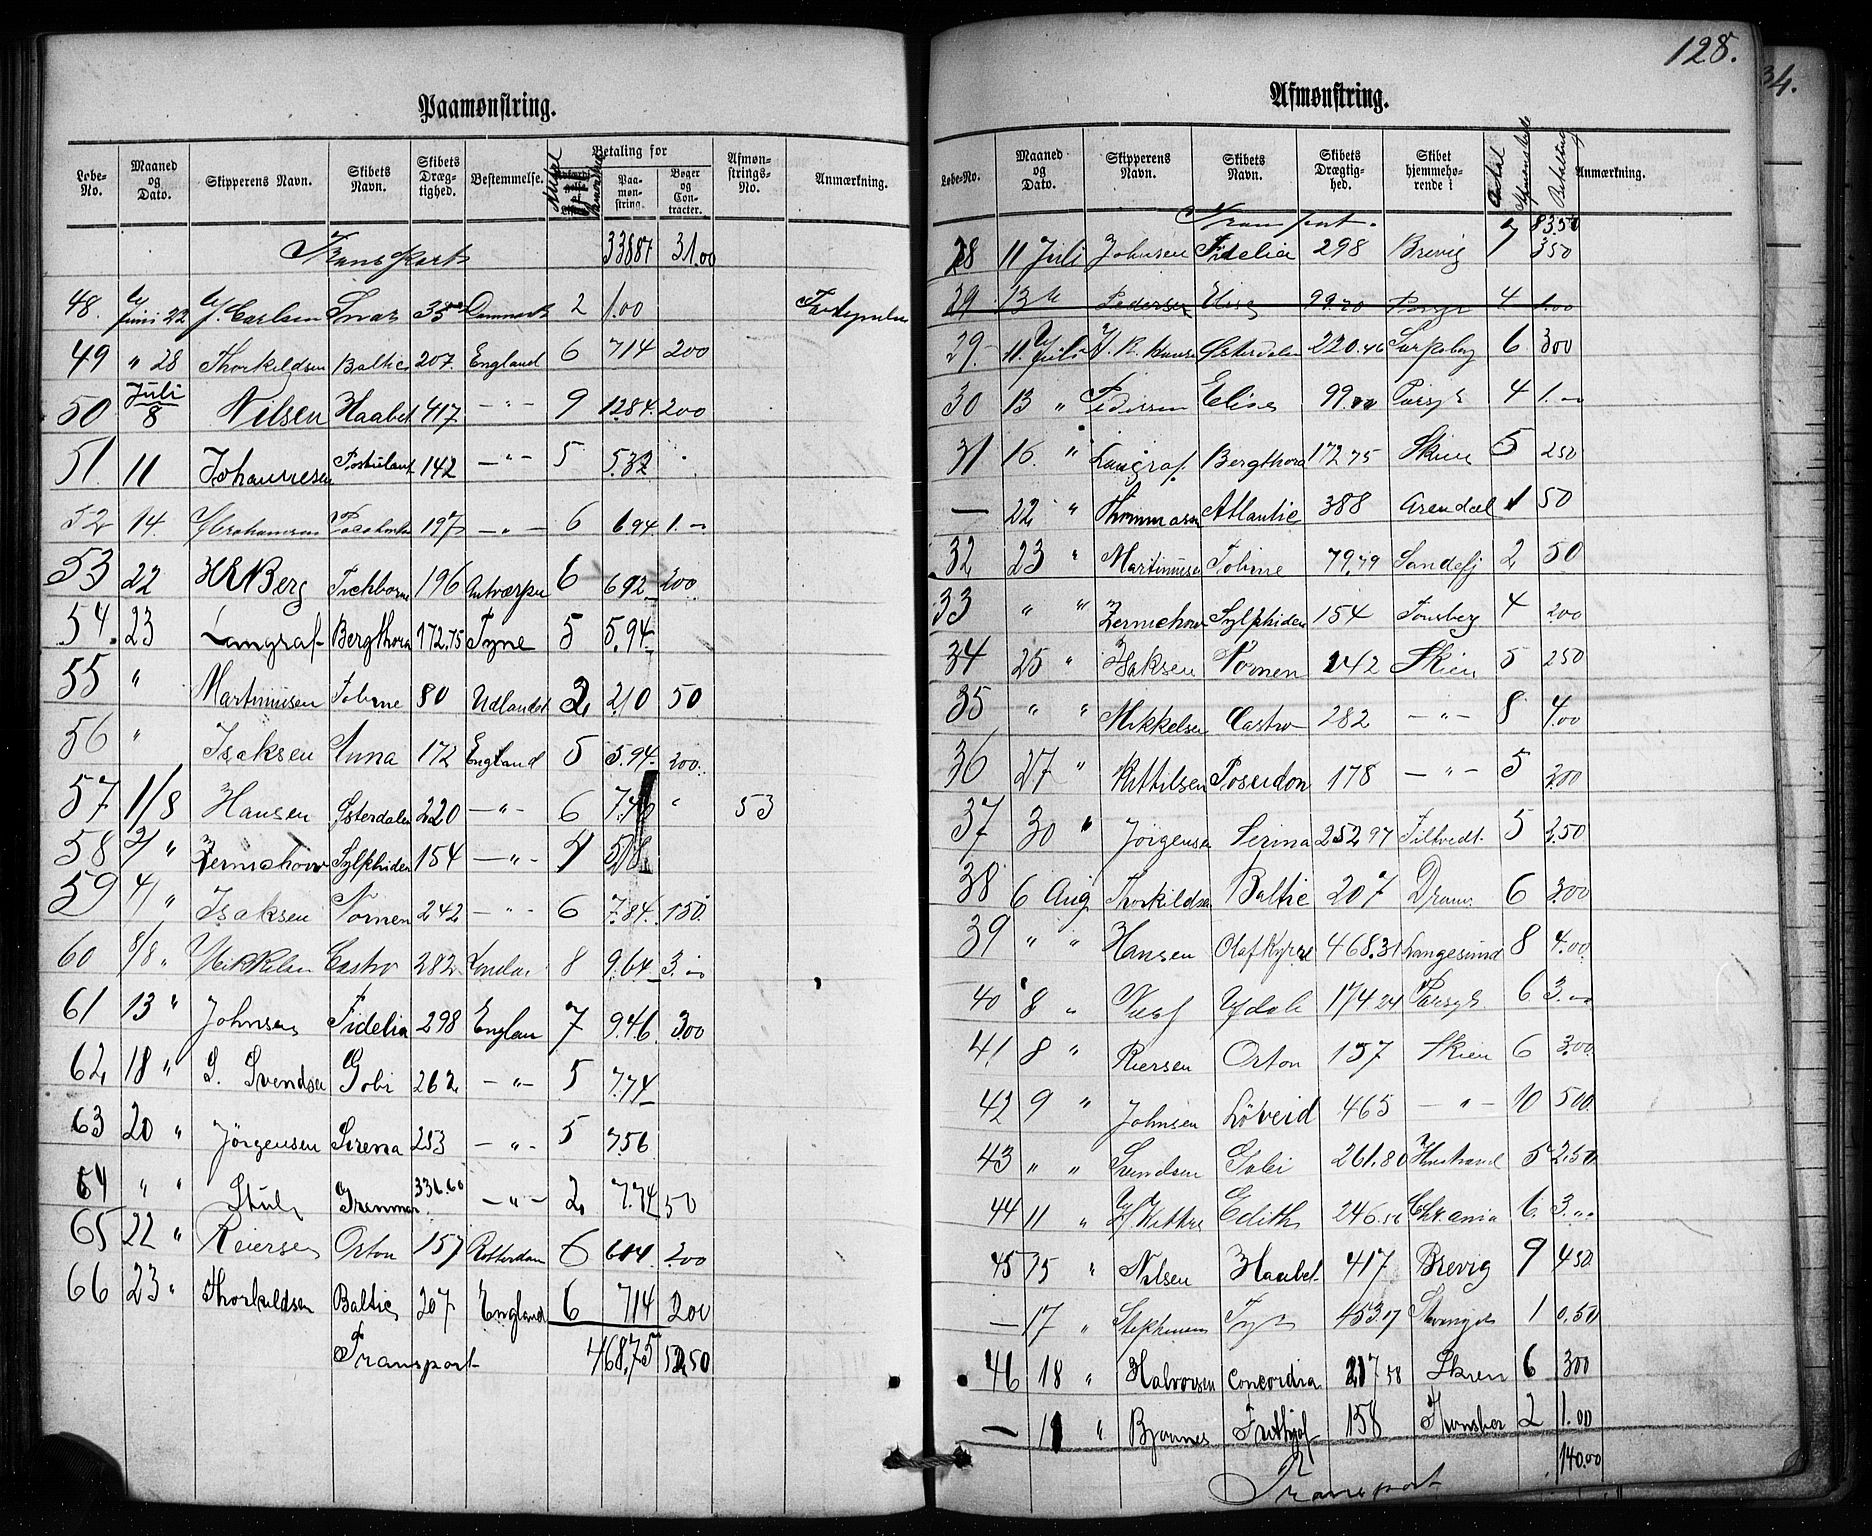 Paamønstring.
Løbe-No. Maaned og Dato. Skipperens Navn. Skibets Navn. Skibets Drægtighed. Bestemmelse. Antal Betaling for Paamønstring. Bøger og Contracter. Afmønstrings-No. Anmærkning.
Transport 338 87 31.00
48. Juni 22 Carlsen 2 1.00
49 " 28 Thorkildsen Baltic 207. England 6 714 200
50 Juli 8 Nilsen Haabet 417 -"- 9 1284. 200
51. 11 Johannesen Postulant 142 -"- 5 5.32
52 14. Abrahamsen 197 -"- 6 6.94. 1.-
53 22 Berg Tichborne 196 Antwerpen 6 692 200
54. 23 Langraf Bergthora 172.75 Tyne 5 5.94
55 " Martinusen Tobine 80 Udlandet 2 210 50
56 " Isaksen Anna 172 England 5 5.94. 200.
57 1/8 Hansen Østerdalen 220 -"- 6 " 53
58 2/ " Zernichow Sylphiden 154 -"- 4
59 4/ " Isaksen Nornen 242 -"- 6 7.84. 150.
60 8/8 " Mikkelsen Castro 282 London 8 9.64 3.-
61 13 " Johnsen Fidelia 298 England 7 9.46 300
62 18 " G. Svendsen Gobi 262 -"- 5 7.74
63 20 " Jörgensen Serena 253 -"- 5 7.56
64 " " 336.60 -"- 2 7.74 50
65 22 " Reiersen Orton 157 Rotterdam 6 614. 200
66 23 " Thorkildsen Baltic 207 England 6 714 200
Transport 468,75 5250
128.
34.
Afmønstring.
Løbe-No. Maaned og Dato. Skipperens Navn. Skibets Navn. Skibets Drægtighed. Skibet hjemmehørende i Antal Betaling Anmærkning.
Transport. 83.50
28 11 Juli Johnsen Fidelia 298 Brevig 7 350
29 13 Pedersen Elise 99.70 Porsgr 4 1.00
29- 11 Juli Hansen Østerdalen 220.46 Sarpsborg 6 300
30 13 " Pedersen Elise 99.70 Porsgr 4 1.-
31 16. " Langraf. Bergthora 172 75 Skien 5 250
— 22 " Thommasen Atlantic 388 Arendal 1 50
32 23 " Martinusen Tobine 79.79 Sandefj 2 50
33 " " Zernichow Sylphiden 154 Tønsberg 4 200
34 25 " Isaksen Nornen 242 Skien 5 250
35 " " Mikkelsen Castro 282 -"- 8 4.00
36 27 " Kittilsen Poseidon 178 -"- 5 200
37 30 " Jörgensen Serina 252 97 Tiltvedt 5 2.50
38 6 Aug Thorkildsen Baltic 207 Dram. 6 3.00
39 " " Hansen Olaf Kyrre 468.31 Langesund 8 4.00
40 8 " Ydale 174 24 Porsgr 6 3.-
41 8 " Riersen Orton 157 Skien 6 3.00
42 9 " Johnsen Löveid 465 -"- 10 500
43 " " Svendsen Gobi 261.80 5 2.50
44 11 " Wettre Edith 246.56 Chrania 6. 3.-
45 15 " Nilsen Haabet 417 Brevig 9 450
— 17 " Stephensen 453.17 Stavanger 1 0.50
46 18 " Halvorsen Concordia 217 58 Skien 6 300
— " Bjønnes Frithjof 158 Thønsber 2 1.00
140.00
Transport